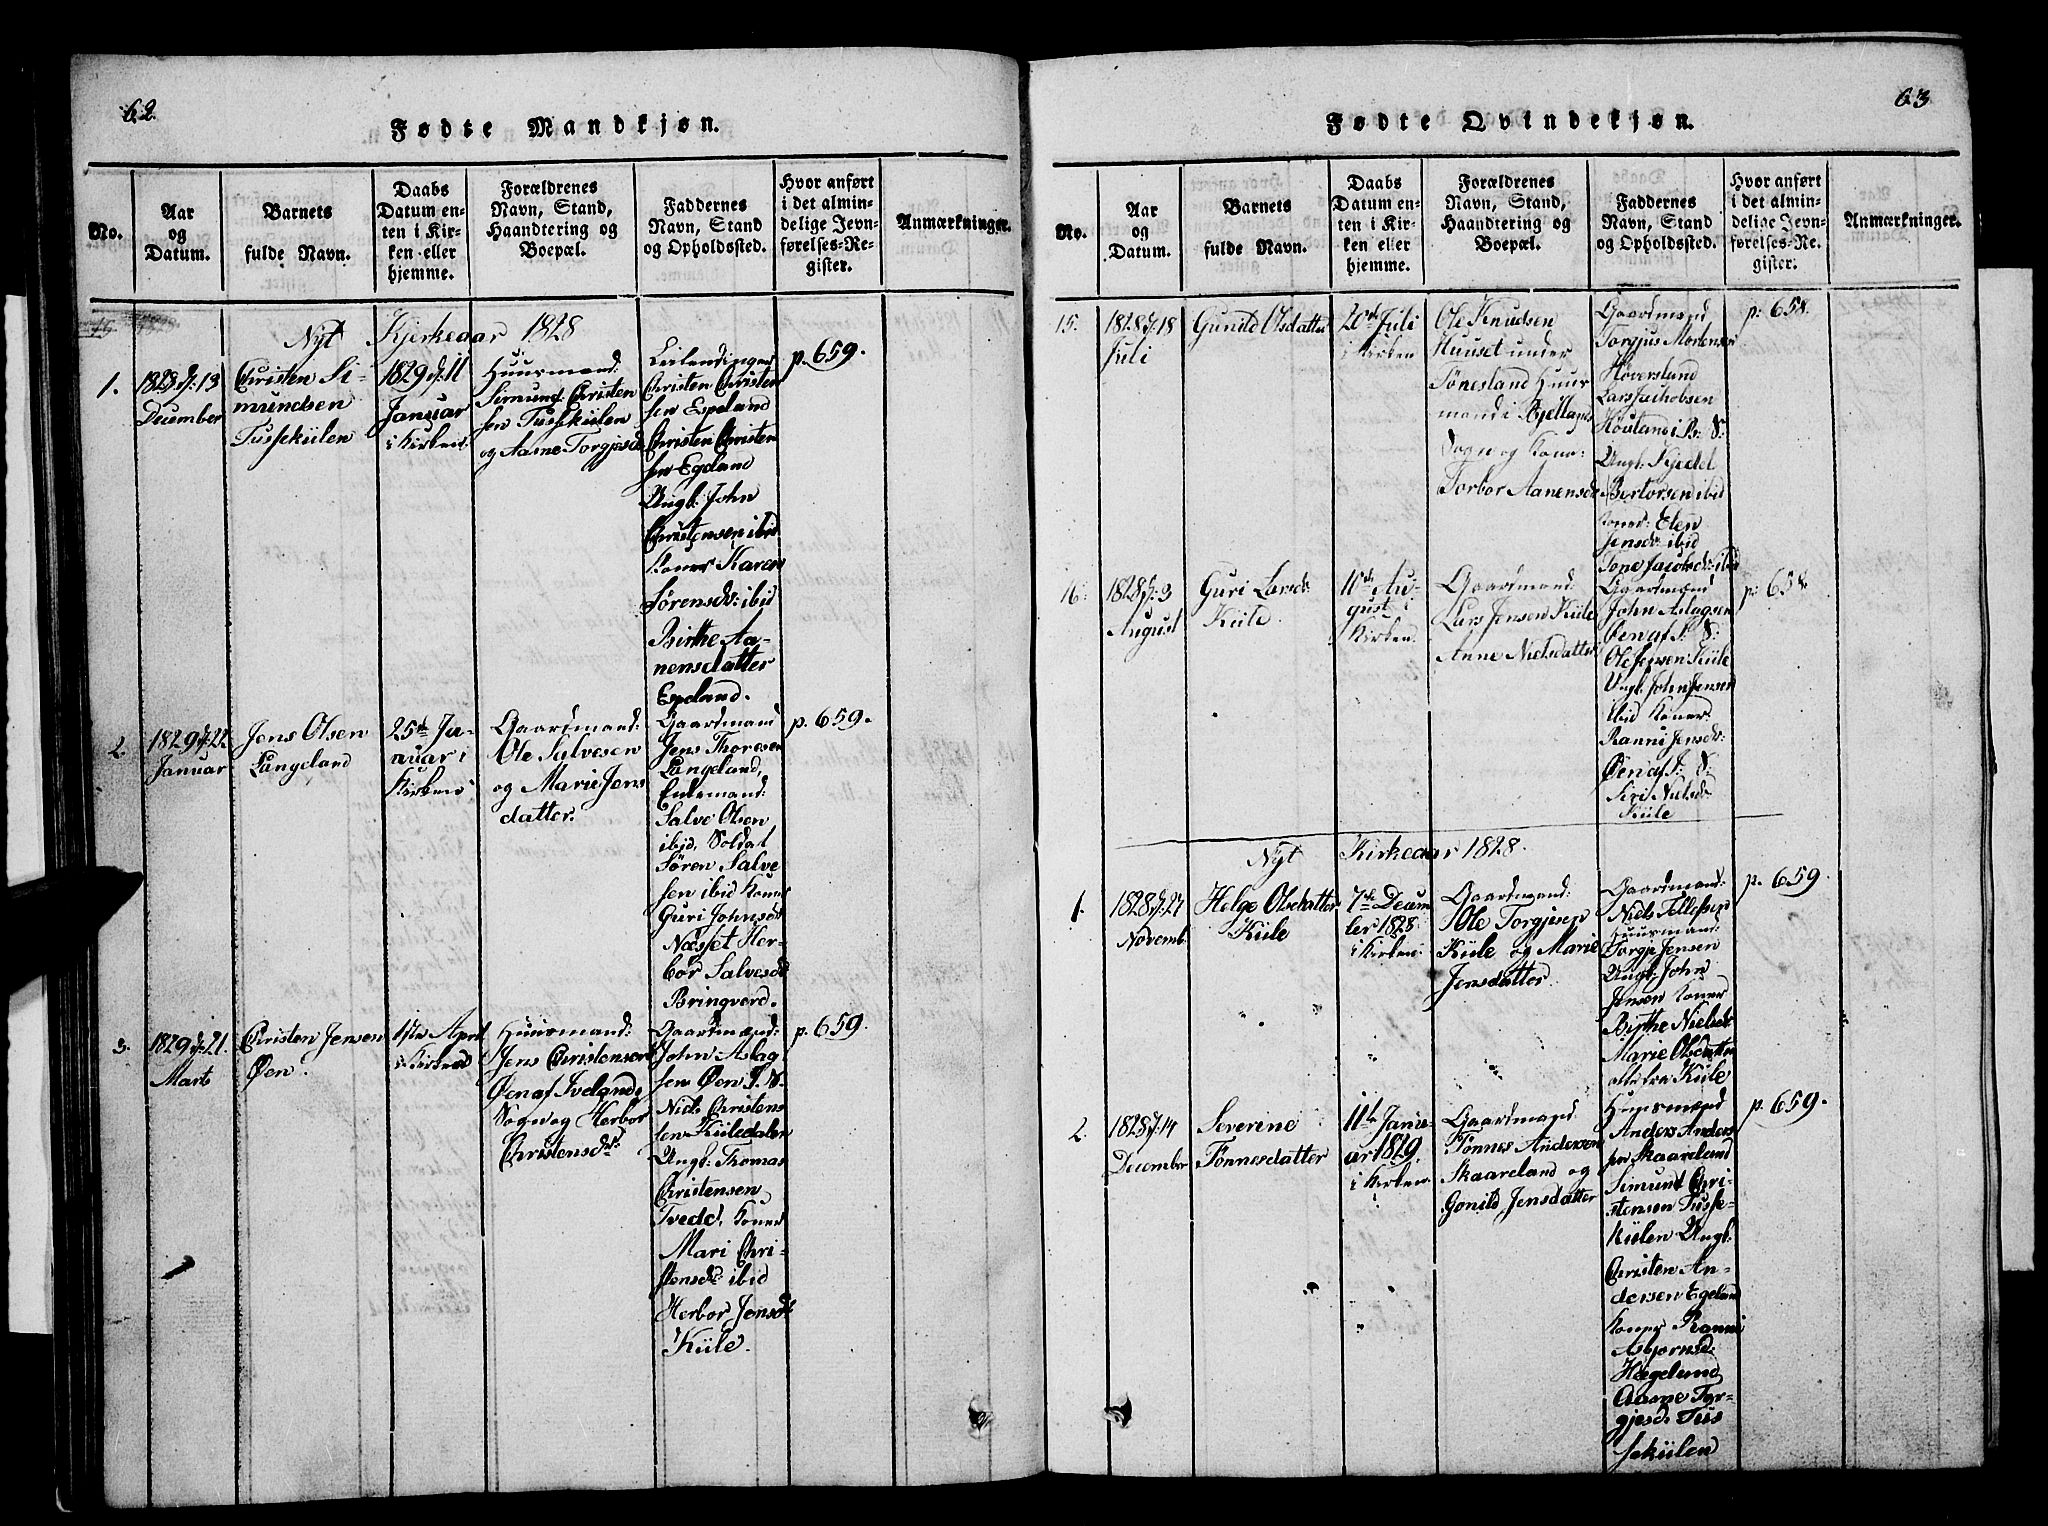 62.
Fødte Mandkjøn.
No.
Aar
og
Datum.
Barnets
fulde Navn.
Daabs
Datum en-
ten i Kir-
ken eller
hjemme.
Forældrenes
Navn, Stand,
Haandtering og
Boepæl.
Faddernes
Navn, Stand
og Opholdssted.
Hvor anført
i det almin-
delige Jevn-
førelses-Re-
gister.
Anmærkninger.
Nyt Kjerkeaar 1828
1.
1828 d: 13
December
Christen Si-
mundsen
Tussekiilen
1829 d: 11
Januar
i Kirken
Huusmand:
Simund Christen
sen Tussekiilen
og Aasne Torgjusd
Leilendinger
Christen Christen
sen Egeland
Christen Christen
sen Egeland
Ungk: John
Christensen ibid
Koner Karen
Sørensdr: ibid
Birthe Aa-
nensdatter
Egeland.
p. 659.
2.
1829 d: 22
Januar
Jens Olsen
Langeland
25de Ja-
nuar i
Kirken
Gaardmand:
Ole Salvesen
og Marie Jens
datter.
Gaardmand
Jens Thoresen
Langeland,
Enkemand:
Salve Olsen
ibid, Soldat
Søren Salve
sen ibid Koner
Guri Johnsdr
Næsset Her-
bor Salvesdr
Bringverd.
p. 659.
3.
1829 d: 21.
Marts
Christen Jensen
Øen.
1ste April
i Kirken
Huusmand:
Jens Christensen
Øen af Ivelands
Sogn og Herbor
Christensdr:
Gaardmænd:
John Aslag
sen Øen I. S.
Niels Christens
sen Kiiledalen
Ungk: Thomas
Christensen
Tvedt, Koner
Mari Chri-
stensdr ibid
Herbor Jensdr
Kiile.
p. 659.
63
Fødte Qvindekjøn.
No.
Aar
og
Datum.
Barnets
fulde Navn.
Daabs
Datum en-
ten i Kir-
ken eller
hjemme.
Forældrenes
Navn, Stand,
Haandtering og
Boepæl.
Faddernes
Navn, Stand
og Opholdssted.
Hvor anført
i det almin-
delige Jevn-
førelses-Re-
gister.
Anmærkninger.
15.
1828 d: 18
Juli
Gunild Olsdatter
20de Juli
i Kirken
Ole Knudsen
Huuset under
Sønesland Huus
mand i Bjellands
Sogn og Kone
Torbor Aanensdr
Gaardmænd
Torgjus Mortensen
Høversland
Lars Jachobsen
i B: S:
Ungk: Kjedel
ibid
Koner: Elen
Jensdr ibid
Tone Jacobsdr: ibid
p: 658.
16.
1828 d: 3
August
Guri Larsdr
Kiile.
10de Au-
gust i
Kirken.
Gaardmand:
Lars Jensen Kiile
Anne Nielsdatter
Gaardmænd
John Aslagsen
Øen af I: S:
Ole Jensen Kiile
Ungk. John Jensen
ibid Koner
Ranni Jensdr:
Øen af I: S:
Siri Nielsdr
Kiile
p: 658
Nyt Kirkeaar 1828.
1.
1828 d: 27
Novemb.
Helge Olsdatter
Kiile
7de Decem
ber 1828
i Kirken.
Gaardmand:
Ole Torgjusen
Kiile og Marie
Jensdatter
Gaardmand:
Niels Tellefsen
Huusmand:
Torgje Jensen
Ungk: John
Jensen Koner
Birthe Nielsdr
Marie Olsdatter
alle fra Kiile
p. 659.
2.
1828 d: 14
December
Severine
Tønnesdatter
11te Janu-
ar 1829.
i Kirken.
Gaardmand
Tønnes Andersen
Skaareland og
Gonild Jensdatter
Huusmænd
Anders Anders
sen Skaareland
Simund Chri-
stensen Tusse-
kiilen Ungk:
Christen An-
dersen Egeland
Koner Ranni
Asbjørnsd:
Hægeland
Aasne Tor-
gjusd: Tus
sekiilen
p. 659.